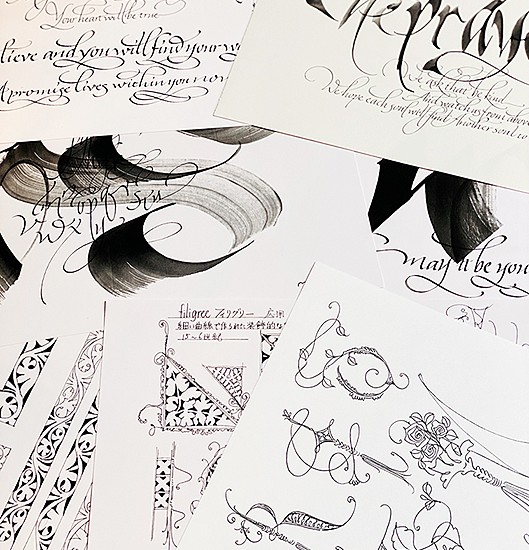 Your heart will be true
lieve and you will find your w
A promise lives within you now
the praye
We ask that life be kind
And watch us from above
We hope each soul will find Another soul to
may it be you
filigree フィリグリー 応用
細い曲線で作られた装飾的な
15~6世紀